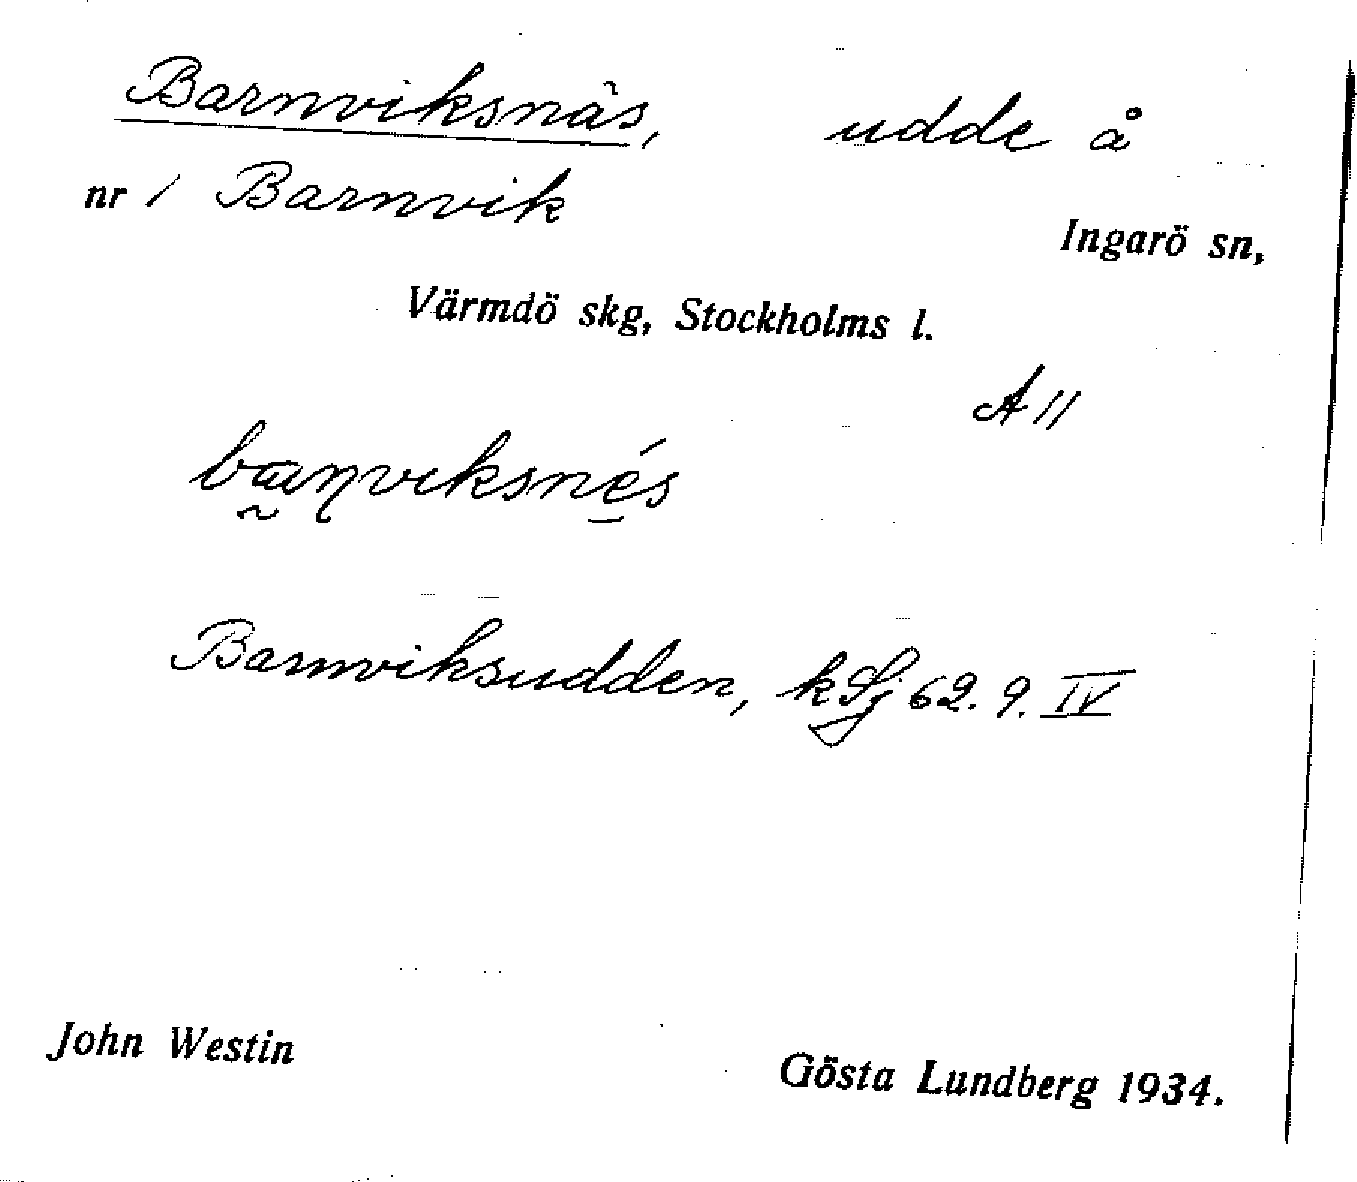 Barnviksnäs, udde å
nr 1 Barnvik
Ingarö sn,
Värmdö skg, Stockholms l.
A 11
Barnviksudden, kSj 62. 9. IV
John Westin
Gösta Lundberg 1934.